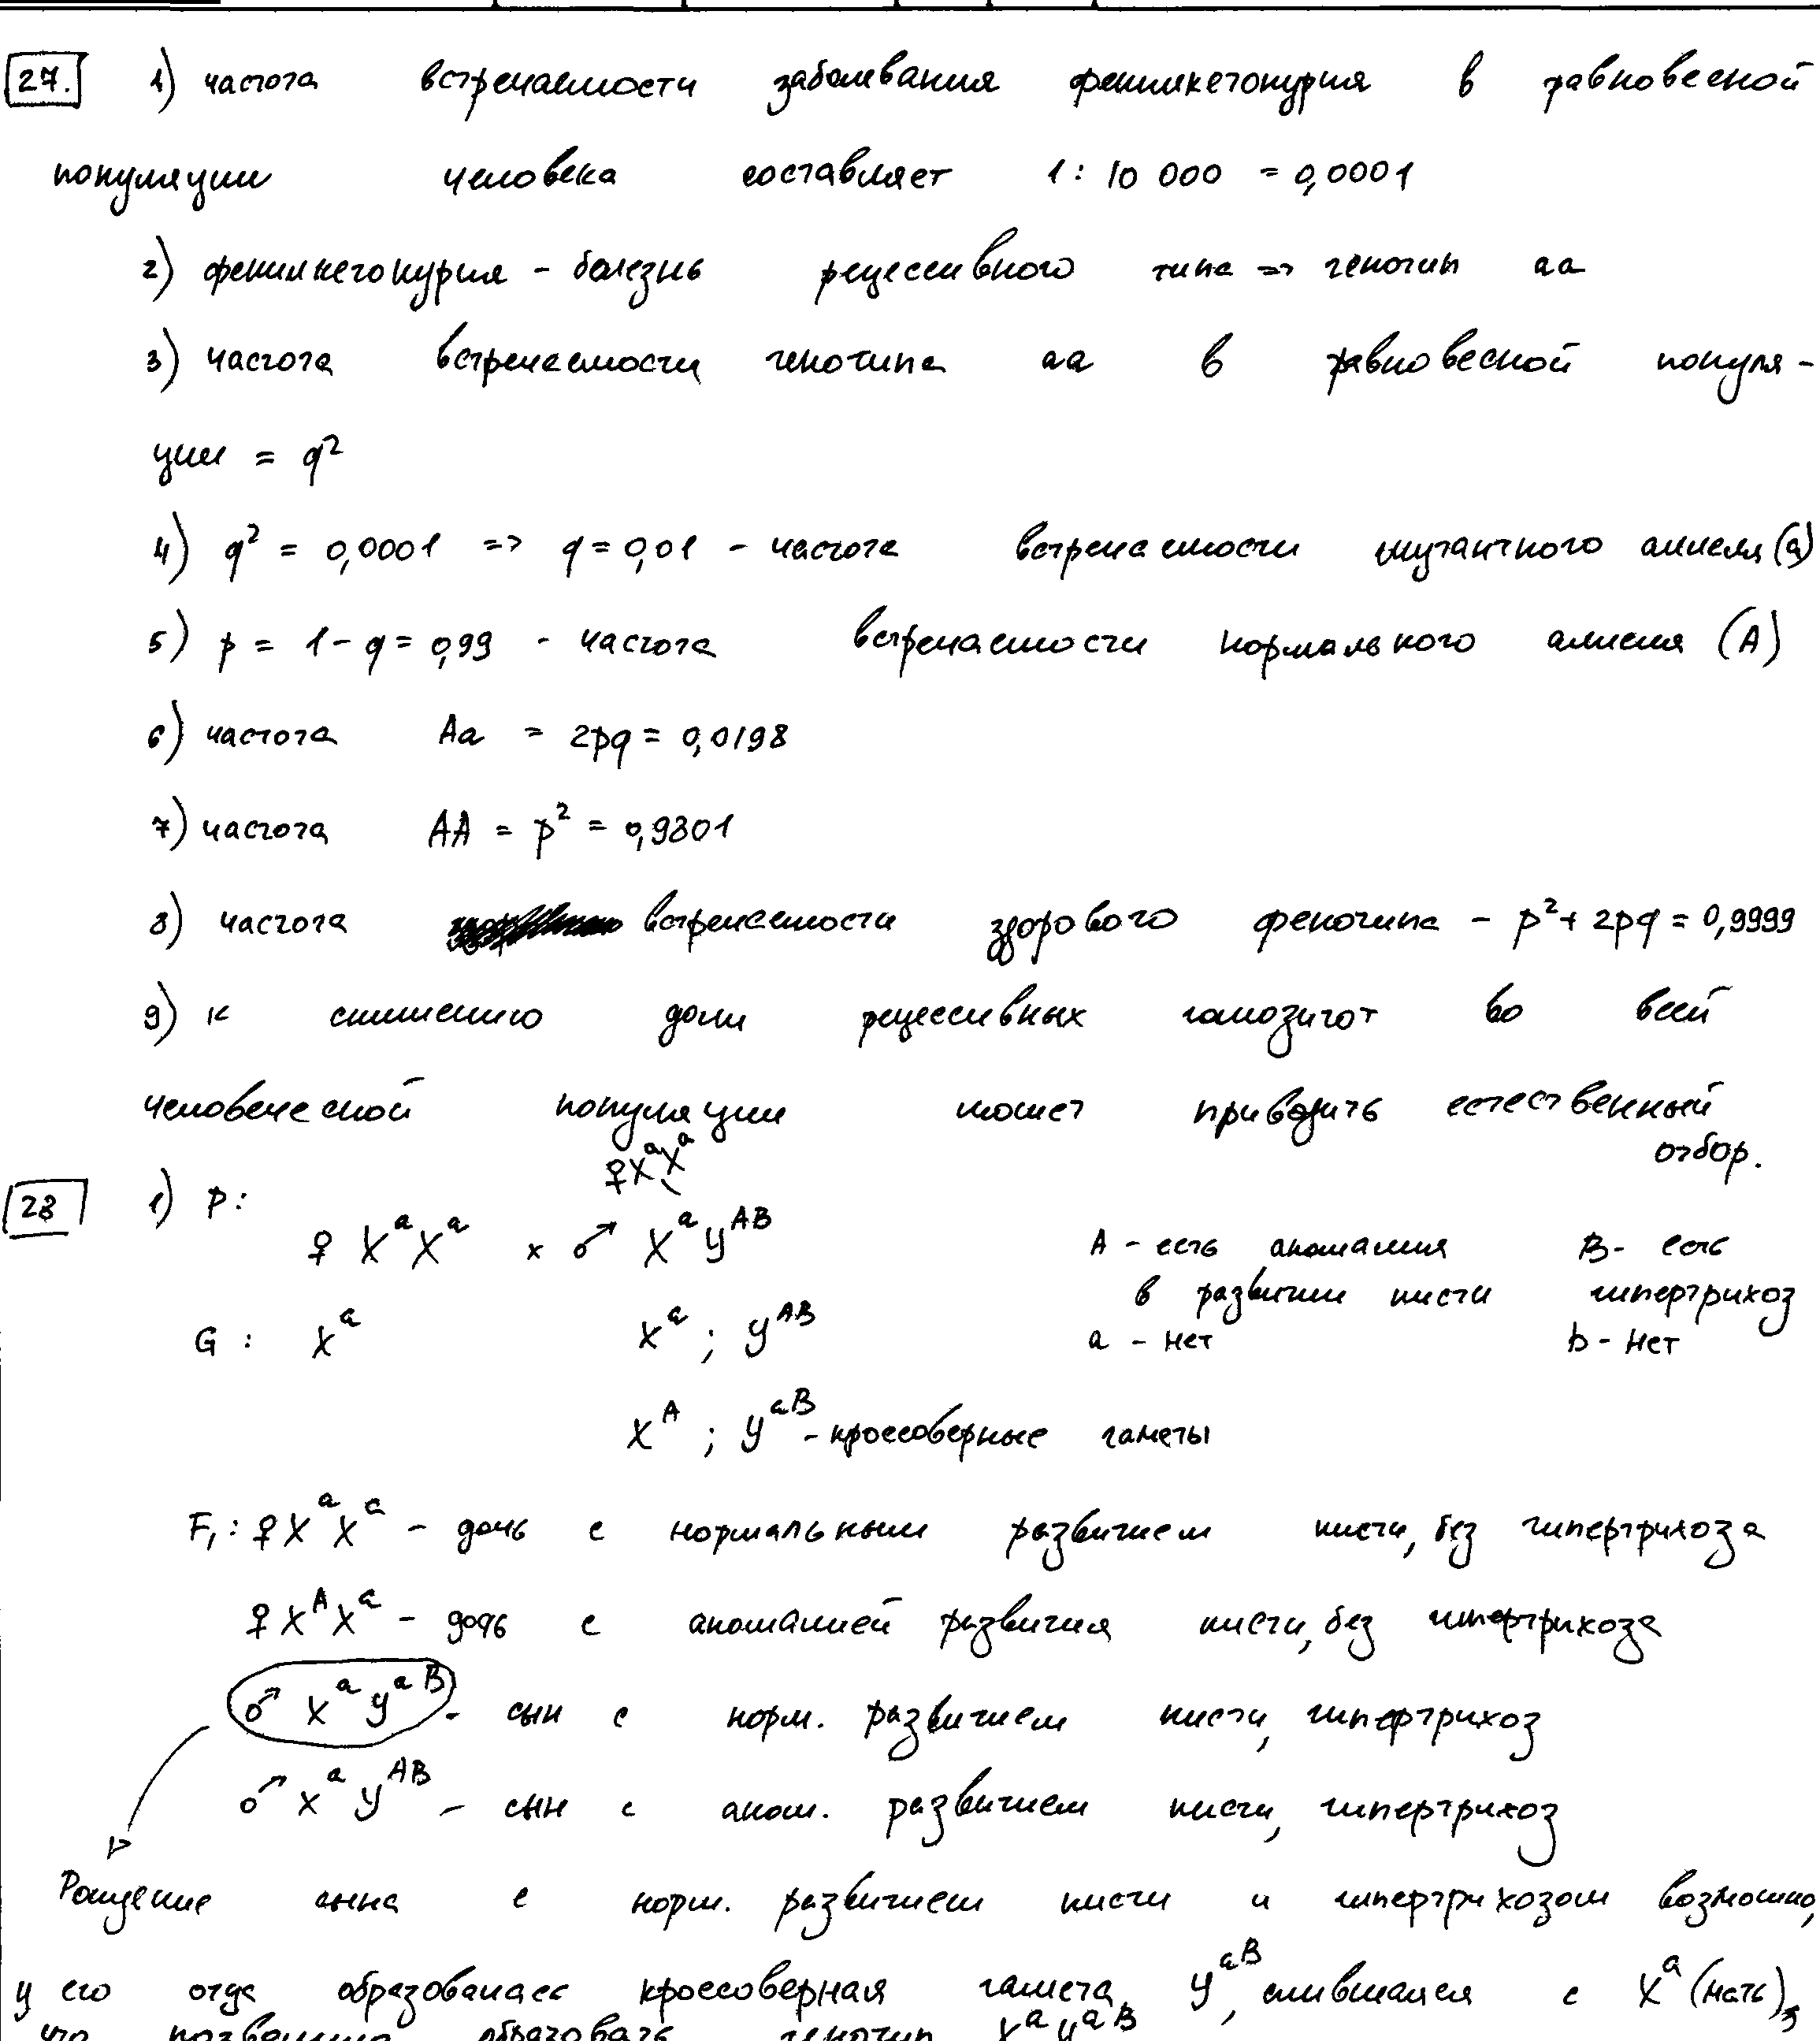 27. 1) частота встречаемости заболевания фенилкетонурия в равновесной
популяции человека составляет 1 : 10 000 = 0,0001
2) фенилкетонурия - болезнь рецессивного типа => генотип аа
3) частота встречаемости генотипа аа в равновесной популя-
ции = q²
4) q² = 0,0001 => q = 0,01 - частота встречаемости мутантного аллеля (а)
5) p = 1 - q = 0,99 - частота встречаемости нормального аллеля (А)
6) частота Аа = 2pq = 0,0198
7) частота АА = p² = 0,9801
8) частота встречаемости здорового фенотипа - p² + 2pq = 0,9999
9) к снижению доли рецессивных гомозигот во всей
человеческой популяции может приводить естественный
отбор.
♀XᵃXᵃ
28 1) P:
♀ XᵃXᵃ x ♂ XᵃYᴬᴮ А - есть аномалия B - есть
в развитии кисти гипертрихоз
G : Xᵃ Xᵃ ; Yᴬᴮ а - нет b - нет
Xᴬ ; Yᵃᴮ - кроссоверные гаметы
F₁ : ♀ XᵃXᵃ - дочь с нормальным развитием кисти, без гипертрихоза
♀ XᴬXᵃ - дочь с аномалией развития кисти, без гипертрихоза
♂ XᵃYᵃᴮ - сын с норм. развитием кисти, гипертрихоз
♂ XᵃYᴬᴮ - сын с аном. развитием кисти, гипертрихоз
Рождение сына с норм. развитием кисти и гипертрихозом возможно,
у его отца образовалась кроссоверная гамета Yᵃᴮ, слившаяся с Xᵃ (мать),
что позволило образовать генотип XᵃYᵃᴮ